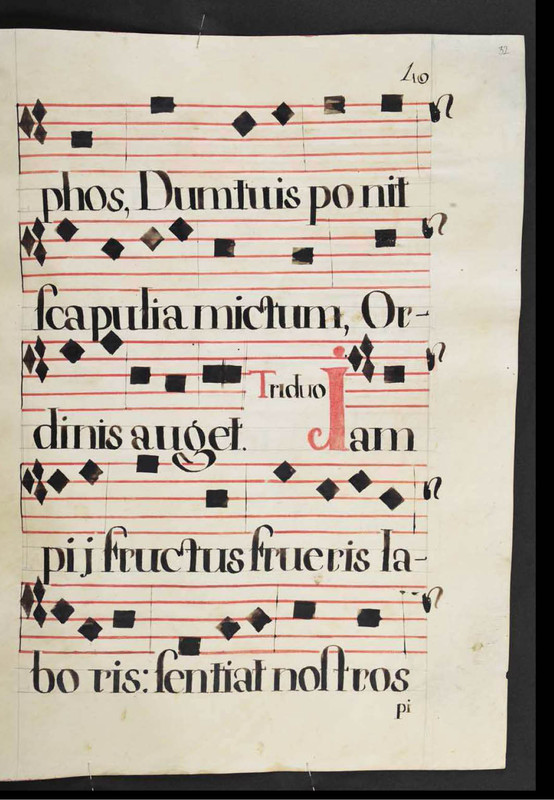 32
40
phos, Dum tuis ponit
scapulia mictum, Or-
dinis auget. Triduo Jam
pij fructus frueris la-
boris: sentiat nostros
pi